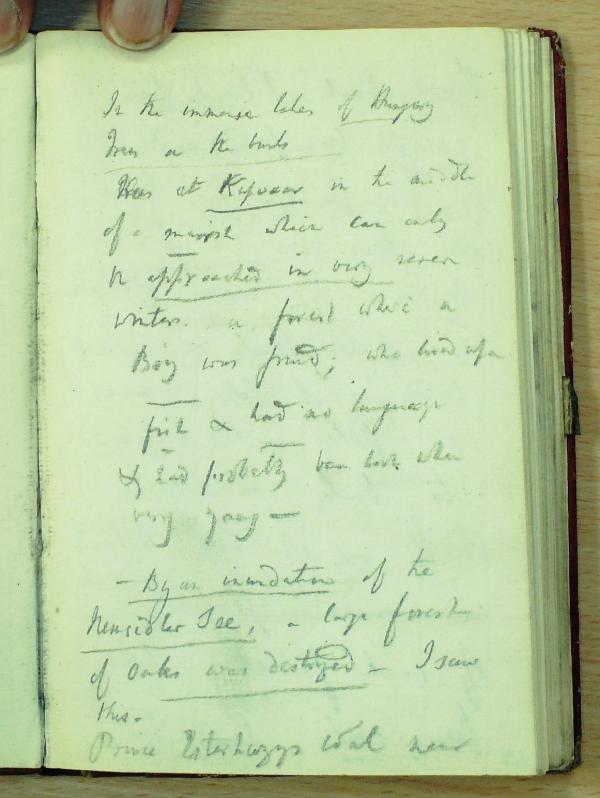 In the immense lakes of Hungary
Trees on the banks
There at Kapuvar in the middle
of a marsh which can only
be approached in very severe
winters. a forest where a
Boy was found; who lived upon
fish & had no language
& had probably been lost when
very young —
— By an inundation of the
Neusidler See, a large forest
of Oaks was destroyed — I saw
this.
Prince Esterhazys coal near